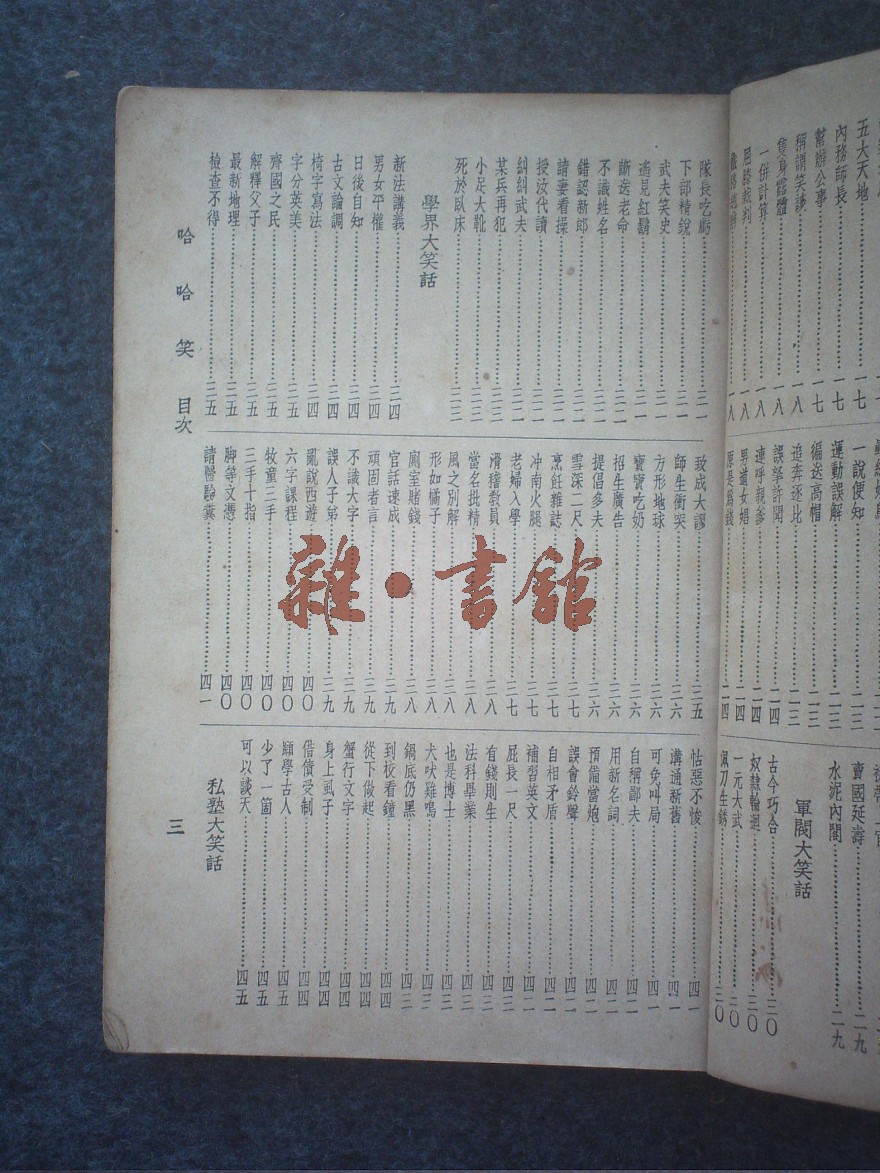 五大天地……一七
內務師長……一七
幫辦公事……一七
稱謂笑談……一八
一併計算……一八
屈膝裁判……一八
一說便知……二三
運動誤解……二三
編送高帽……二三
追奔逐北……二三
連呼親爹……二四
男盜女娼……二四
原是爲錢……二四
賣國延壽……二九
水泥內閣……二九
軍閥大笑話
古今巧合……三〇
奴隸輪迴……三〇
一元大武……三〇
佩刀生銹……三〇
隊長吃虧……三一
下部精銳……三一
武夫笑史……三一
遙見紅鬍……三一
斷送老命……三二
不識姓名……三二
錯認新郎……三二
請妻看操……三二
授汝代讀……三二
糾糾武夫……三二
某兵再犯……三三
小足大靴……三三
死於臥床……三三
學界大笑話
新法講義……三四
男女平權……三四
日後自知……三四
古文論調……三四
椅字寫法……三四
字分英美……三五
齊國之民……三五
解釋父子……三五
最新地理……三五
檢查不得……三五
致成大謬……三五
師生衝突……三六
方形地球……三六
寶寶吃奶……三六
招生廣告……三六
提倡多夫……三六
雪深二尺……三七
烹飪雜誌……三七
冲南火腿……三七
老婦入學……三七
滑稽教員……三八
當名批精……三八
風之別解……三八
形如橘子……三八
廁室賭錢……三八
官話速成……三九
頑固者言……三九
不識大字……三九
誤人子弟……三九
亂說西遊……四〇
六字課程……四〇
牧童三手……四〇
三手十指……四〇
脚等文憑……四〇
請醫驗糞……四一
怙惡不悛……四一
溝通新舊……四一
可免叫局……四一
自稱鄙夫……四一
用新名詞……四二
預備當炮……四二
誤會鈴聲……四二
自相矛盾……四二
補習英文……四二
屁長一尺……四三
有錢則生……四三
法科畢業……四三
也是博士……四三
犬吠雞鳴……四三
鍋底仍黑……四三
到校看鐘……四四
從下做起……四四
蟹行文字……四四
身上虱子……四四
借債受制……四四
顓學古人……四五
少了一箇……四五
可以談天……四五
私塾大笑話
哈哈笑 目次
三
雜·書館